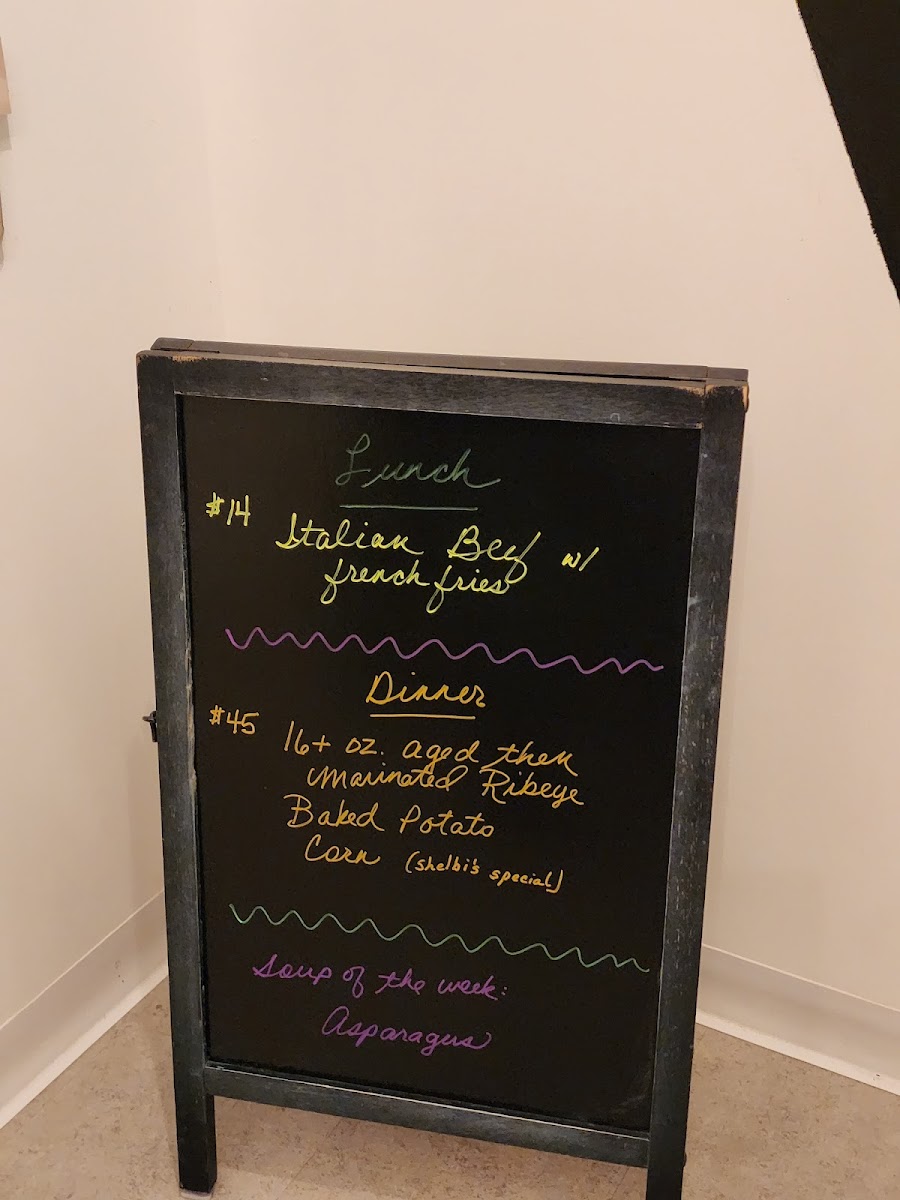 Lunch
$14
Italian Beef w/
french fries
Dinner
$45
16+ oz. aged then
marinated Ribeye
Baked Potato
Corn (shelbi's special)
Soup of the week:
Asparagus